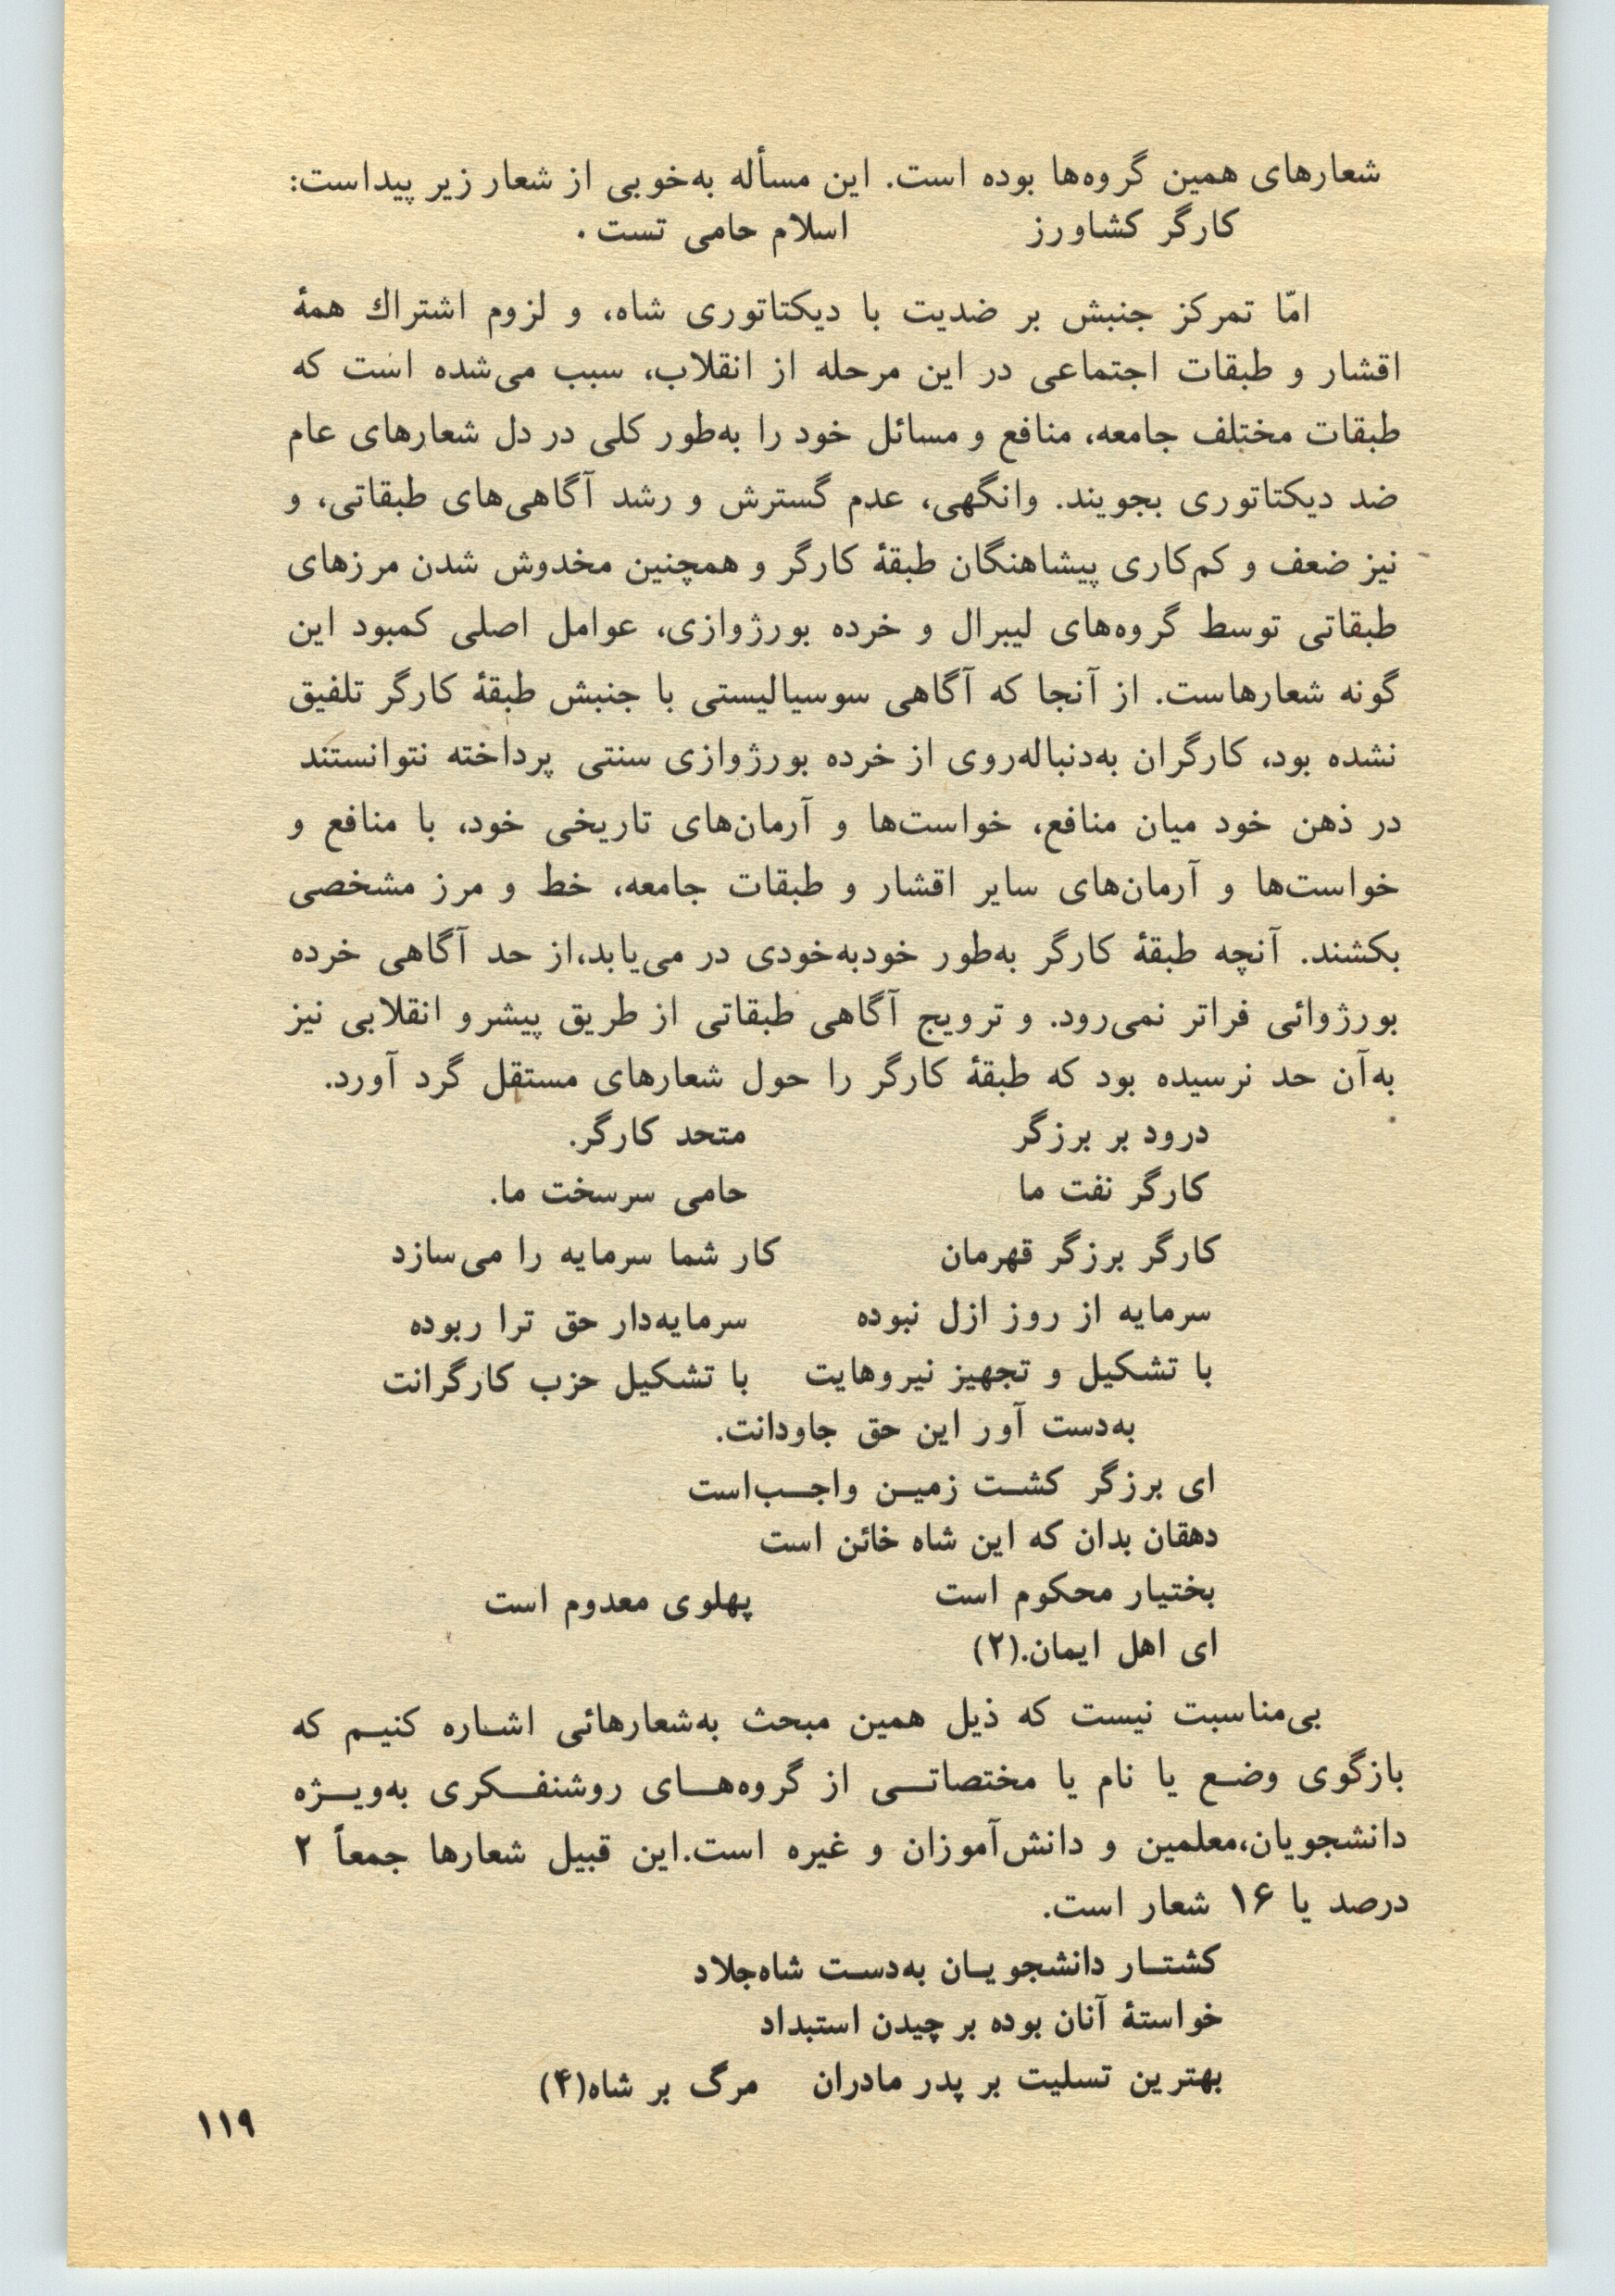 شعارهای همین گروه‌ها بوده است. این مسأله به‌خوبی از شعار زیر پیداست:
کارگر کشاورز اسلام حامی تست.
امّا تمرکز جنبش بر ضدیت با دیکتاتوری شاه، و لزوم اشتراك همهٔ
اقشار و طبقات اجتماعی در این مرحله از انقلاب، سبب می‌شده است که
طبقات مختلف جامعه، منافع و مسائل خود را به‌طور کلی در دل شعارهای عام
ضد دیکتاتوری بجویند. وانگهی، عدم گسترش و رشد آگاهی‌های طبقاتی، و
نیز ضعف و کم‌کاری پیشاهنگان طبقهٔ کارگر و همچنین مخدوش شدن مرزهای
طبقاتی توسط گروه‌های لیبرال و خرده بورژوازی، عوامل اصلی کمبود این
گونه شعارهاست. از آنجا که آگاهی سوسیالیستی با جنبش طبقهٔ کارگر تلفیق
نشده بود، کارگران به‌دنباله‌روی از خرده بورژوازی سنتی پرداخته نتوانستند
در ذهن خود میان منافع، خواست‌ها و آرمان‌های تاریخی خود، با منافع و
خواست‌ها و آرمان‌های سایر اقشار و طبقات جامعه، خط و مرز مشخصی
بکشند. آنچه طبقهٔ کارگر به‌طور خودبه‌خودی در می‌یابد،از حد آگاهی خرده
بورژوائی فراتر نمی‌رود. و ترویج آگاهی طبقاتی از طریق پیشرو انقلابی نیز
به‌آن حد نرسیده بود که طبقهٔ کارگر را حول شعارهای مستقل گرد آورد.
درود بر برزگر متحد کارگر.
کارگر نفت ما حامی سرسخت ما.
کارگر برزگر قهرمان کار شما سرمایه را می‌سازد
سرمایه از روز ازل نبوده سرمایه‌دار حق ترا ربوده
با تشکیل و تجهیز نیروهایت با تشکیل حزب کارگرانت
به‌دست آور این حق جاودانت.
ای برزگر کشت زمین واجب‌است
دهقان بدان که این شاه خائن است
بختیار محکوم است پهلوی معدوم است
ای اهل ایمان.(۲)
بی‌مناسبت نیست که ذیل همین مبحث به‌شعارهائی اشاره کنیم که
بازگوی وضع یا نام یا مختصاتی از گروه‌های روشنفکری به‌ویژه
دانشجویان،معلمین و دانش‌آموزان و غیره است.این قبیل شعارها جمعاً ۲
درصد یا ۱۶ شعار است.
کشتار دانشجویان به‌دست شاه‌جلاد
خواستهٔ آنان بوده برچیدن استبداد
بهترین تسلیت بر پدر مادران مرگ بر شاه(۴)
۱۱۹